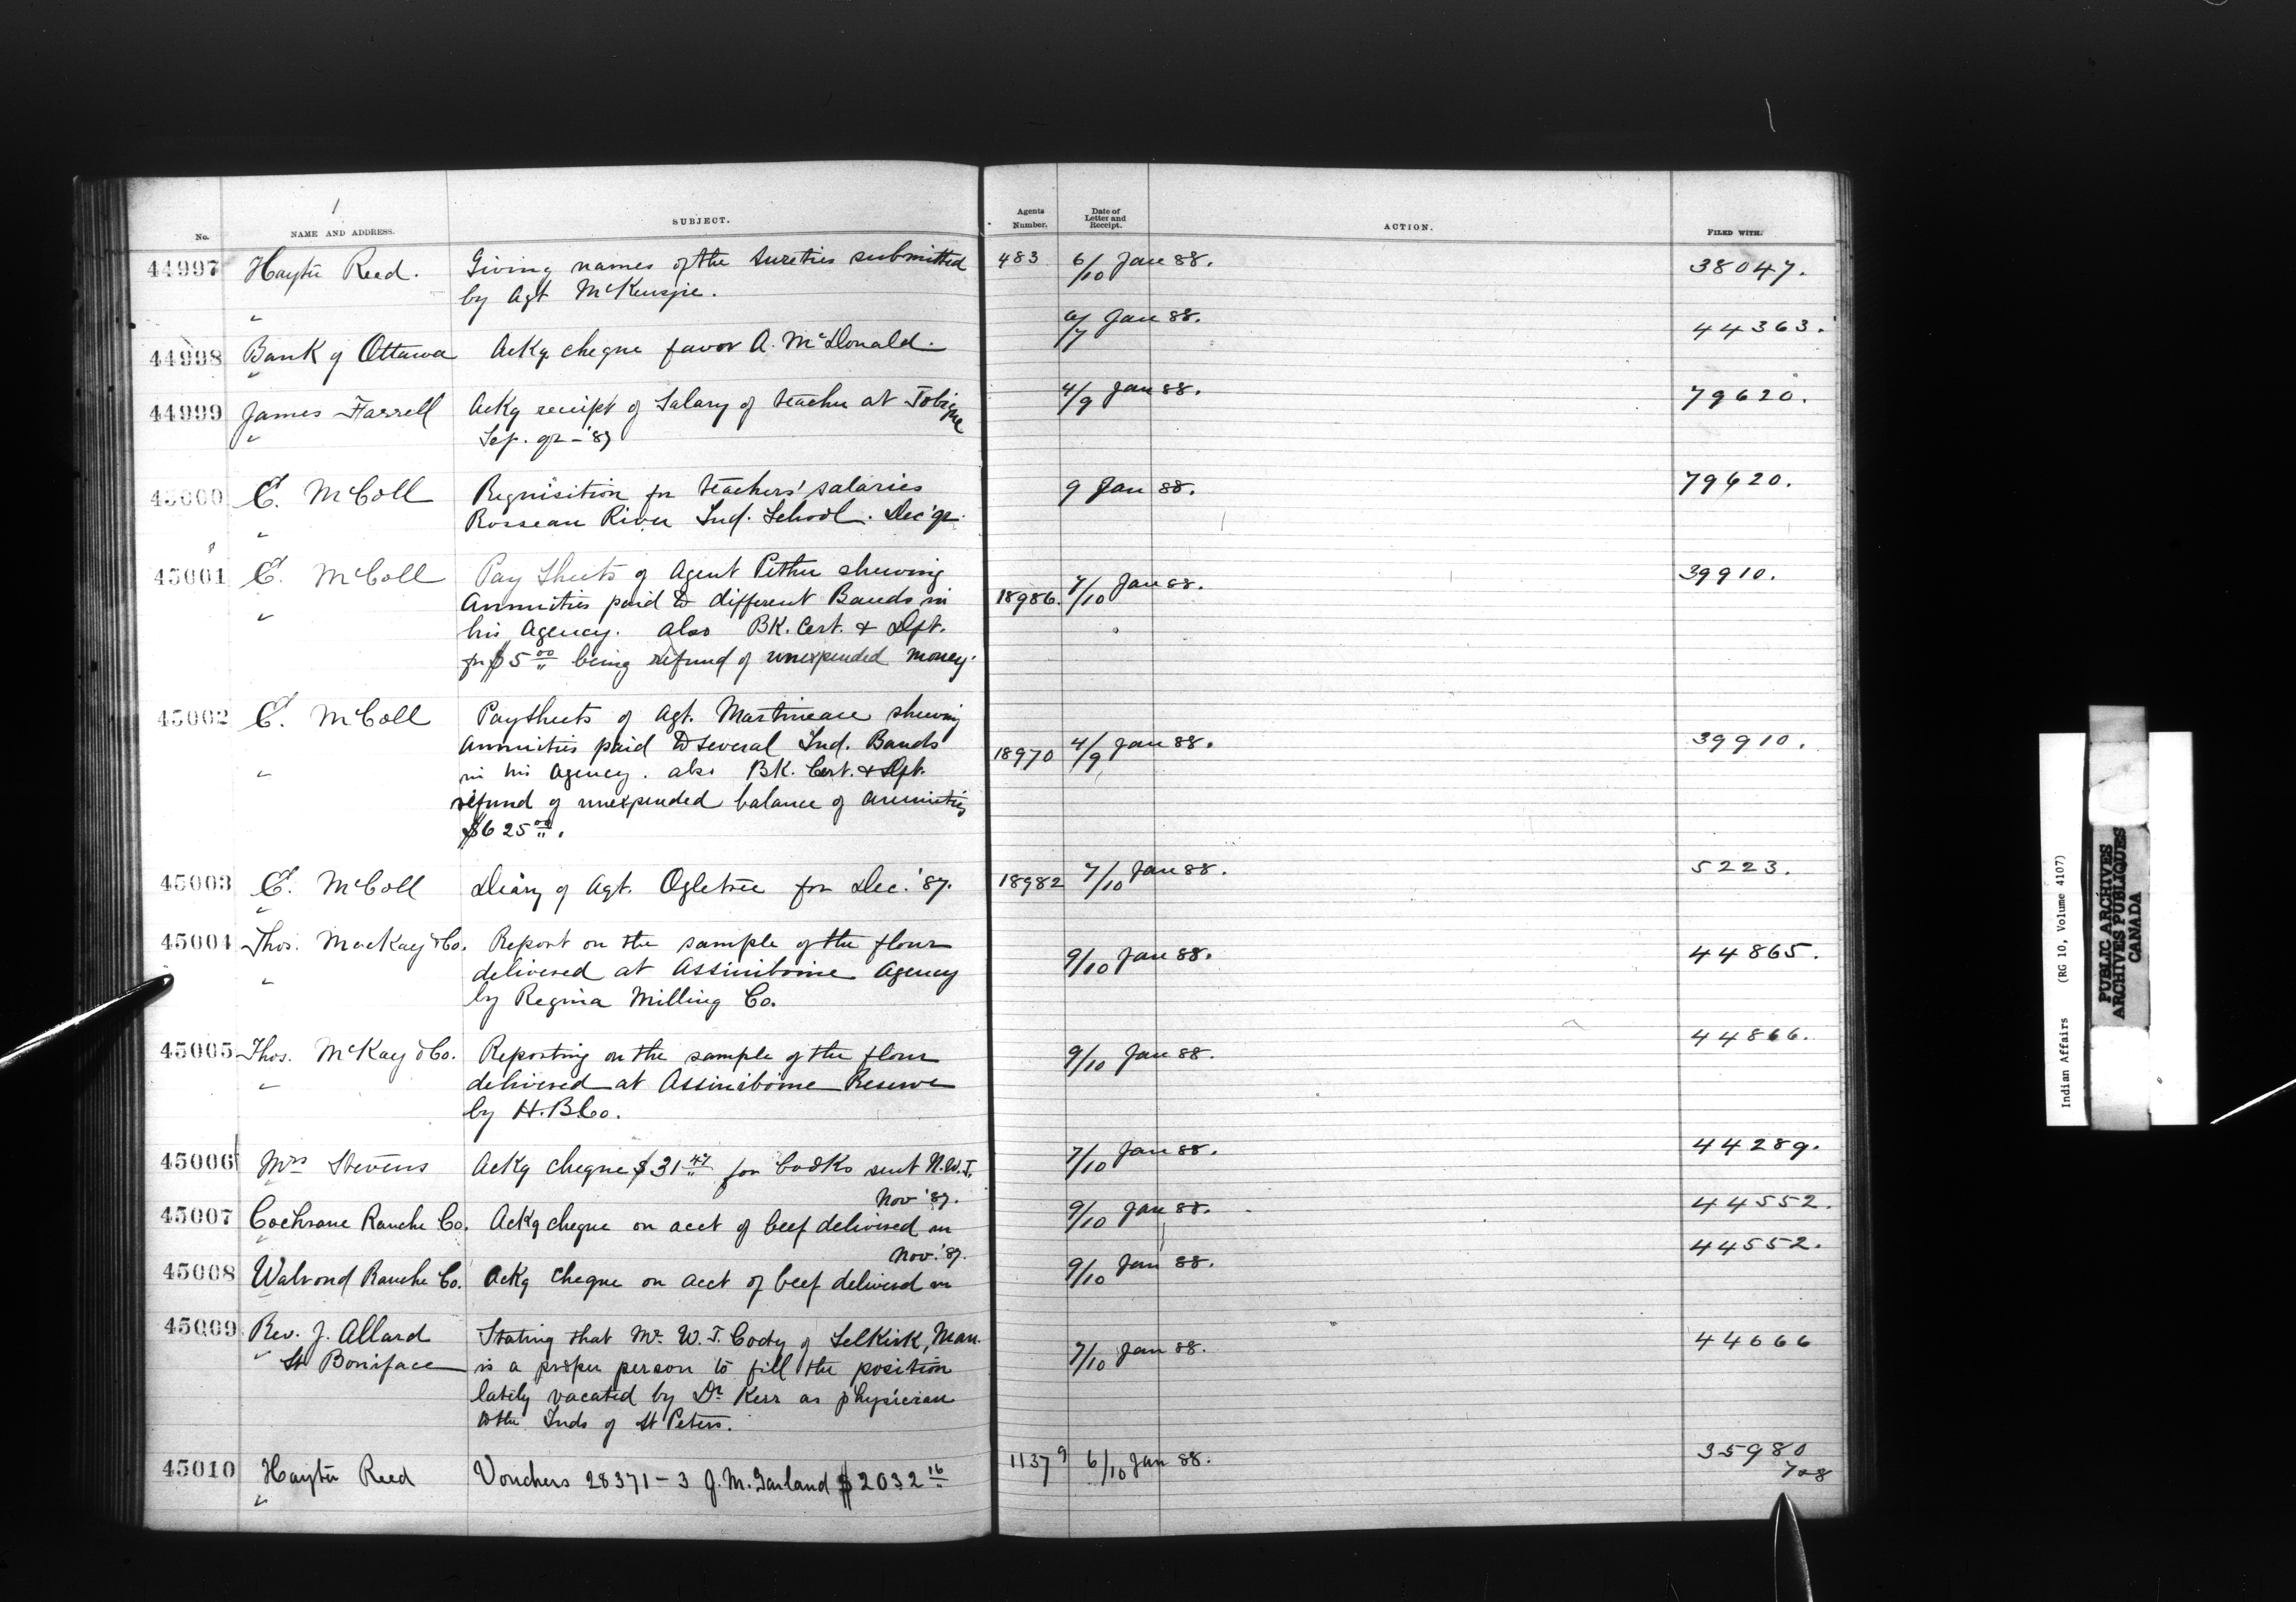 No. NAME AND ADDRESS. SUBJECT. Agents Number. Date of Letter and Receipt. ACTION. FILED WITH.
44997 Hayter Reed. Giving names of the Sureties submitted 483 6/10 Jan 88. 38047.
by Agt McKenzie.
44998 Bank of Ottawa Ackg cheque favor A. McDonald. 6/7 Jan 88. 44363.
44999 James Farrell Ackg receipt of Salary of teacher at Tobique 4/9 Jan 88. 79620.
Sep. qr - '87
45000 E. McColl Requisition for teachers' salaries 9 Jan 88. 79620.
Rosseau River Ind. School. Dec qr.
45001 E. McColl Pay Sheets of Agent Pither shewing 39910.
Annuities paid to different Bands in 18986. 7/10 Jan 88.
his Agency. also BK. Cert. & Dft.
for $5 00 being refund of unexpended money.
45002 E. McColl Paysheets of Agt. Martineau shewing
annuities paid to several Ind. Bands 18970 4/9 Jan 88. 39910.
in his Agency. also BK. Cert. & Dft.
refund of unexpended balance of annuities
$625 00.
45003 E. McColl Diary of Agt. Ogletree for Dec. '87. 18982 7/10 Jan 88. 5223.
45004 Thos. MacKay & Co. Report on the sample of the flour 9/10 Jan 88. 44865.
delivered at Assiniboine Agency
by Regina Milling Co.
45005 Thos. McKay & Co. Reporting on the sample of the flour 9/10 Jan 88. 44866.
delivered at Assiniboine Reserve
by H.B.Co.
45006 Mrs Stevens Ackg cheque $31 47 for books sent N.W.T. 7/10 Jan 88. 44289.
Nov '87.
45007 Cochrane Ranche Co. Ackg cheque on acct of beef delivered in 9/10 Jan 88. 44552.
Nov. '87.
45008 Walrond Ranche Co. Ackg cheque on acct of beef delivered in 9/10 Jan 88. 44552.
45009 Rev. J. Allard Stating that Mr. W. T. Cody of Selkirk, Man. 7/10 Jan 88. 44666
St Boniface is a proper person to fill the position
lately vacated by Dr Kerr as physician
to the Inds of St Peters.
45010 Hayter Reed Vouchers 28371-3 J. M. Garland $2032 16 11379 6/10 Jan 88. 35980
708
Indian Affairs (RG 10, Volume 4107)
PUBLIC ARCHIVES
ARCHIVES PUBLIQUES
CANADA